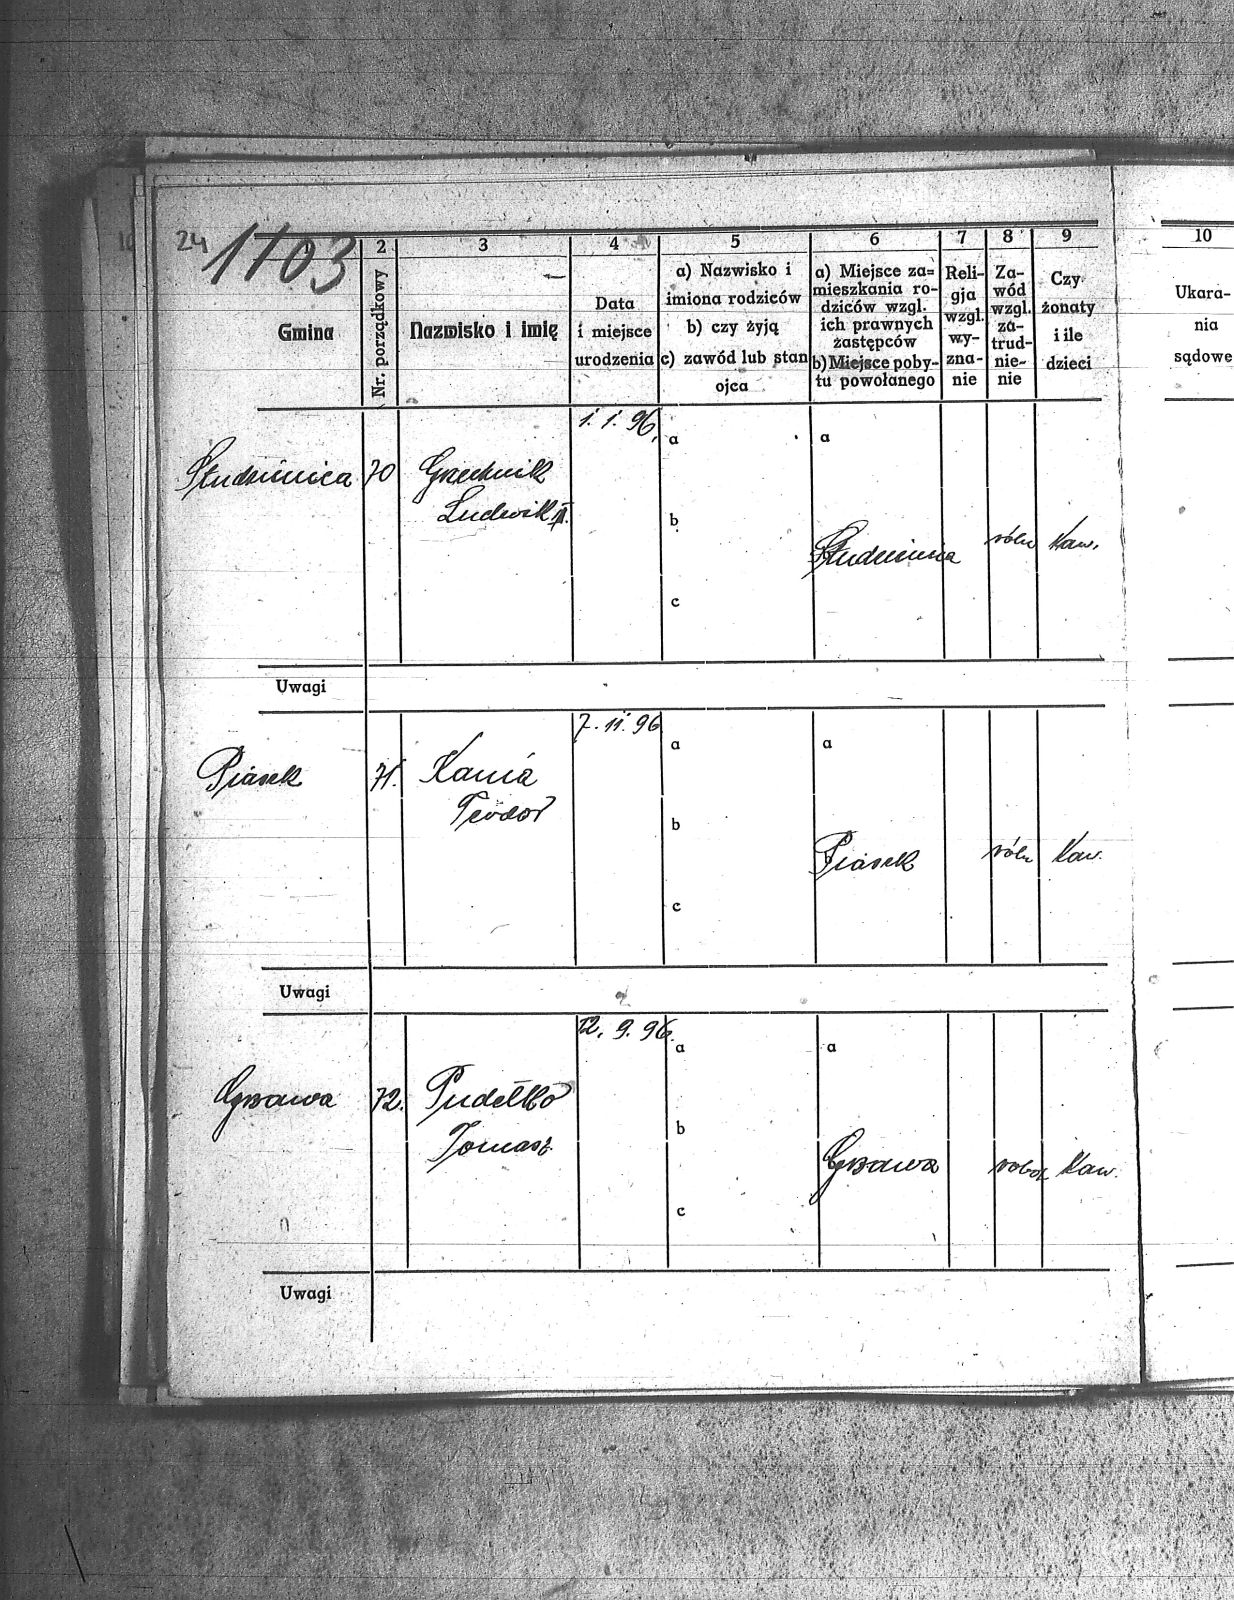 24 1103
2 3 4 5 6 7 8 9 10
Gmina
Nr. porządkowy
Nazwisko i imię
Data
i miejsce
urodzenia
a) Nazwisko i
imiona rodziców
b) czy żyją
c) zawód lub stan
ojca
a) Miejsce za=
mieszkania ro-
dziców wzgl.
ich prawnych
zastępców
b) Miejsce poby-
tu powołanego
Reli-
gja
wzgl.
wy-
zna-
nie
Za-
wód
wzgl.
za-
trud-
nie-
nie
Czy
żonaty
i ile
dzieci
Ukara-
nia
sądowe
1. 1. 96.
a a
Studzienica 70 Grzechnik
Ludwik II.
b
Studzienica róln Kaw.
c
Uwagi
7. 11. 96
a a
Piasek 71. Kania
Teodor
b
Piasek róln Kaw.
c
Uwagi
12. 9. 96.
a a
Grzawa 72. Pudełko
Tomasz
b
Grzawa robot Kaw.
c
Uwagi